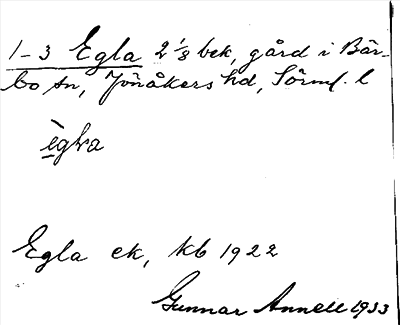 1-3 Egla 2 1/8 bek, gård i Bär-
bo sn, Jönåkers hd, Sörml. l
ègla
Egla ek, kb 1922
Gunnar Annell 1933